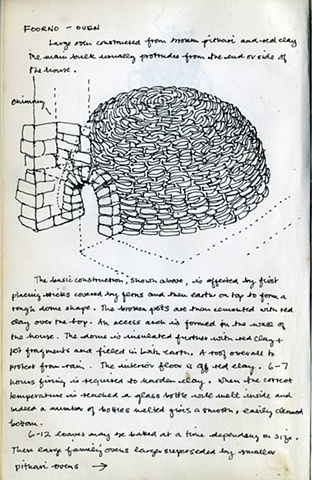 FOORNO - OVEN
Large oven constructed from broken pithari and red clay
The main bulk usually protrudes from the end or side of
the house.
Chimney
The basic construction, shown above, is effected by first
placing sticks covered by ferns and then earth on top to form a
rough dome shape. The broken pots are then cemented with red
clay over the top. An access arch is formed in the wall of
the house. The dome is insulated further with red clay +
pot fragments and filled in with earth. A roof overall to
protect from rain. The interior floor is of red clay. 6-7
hours firing is required to harden clay. When the correct
temperature is reached a glass bottle will melt inside and
indeed a number of bottles melted gives a smooth, easily cleaned
bottom.
6-12 loaves may be baked at a time depending on size.
These large family ovens larger superseded by smaller
pithari ovens →